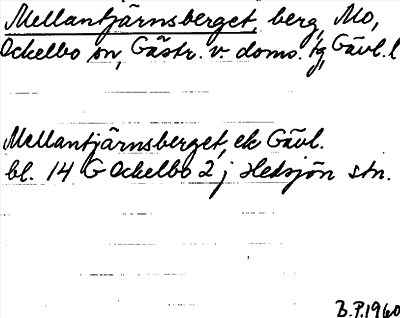 Mellantjärnsberget, berg, Mo,
Ockelbo sn, Gästr. v doms. tg, Gävl. l
Mellantjärnsberget, ek Gävl.
bl. 14 G Ockelbo 2 j Hedsjön stn.
B.P.1960